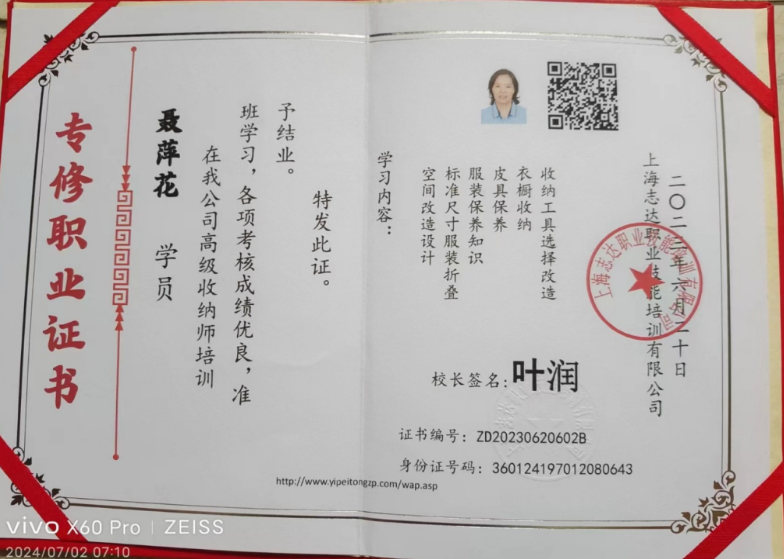 专修职业证书
聂萍花 学员
在我公司高级收纳师培训
班学习，各项考核成绩优良，准
予结业。
特发此证。
http://www.yipeitongzp.com/wap.asp
学习内容：
空间改造设计
标准尺寸服装折叠
服装保养知识
皮具保养
衣橱收纳
收纳工具选择改造
校长签名：叶润
证书编号：ZD20230620602B
身份证号码：360124197012080643
上海志达职业技能培训有限公司
二〇二三年六月二十日
上海志达职业技能培训有限公司
vivo X60 Pro | ZEISS
2024/07/02 07:10